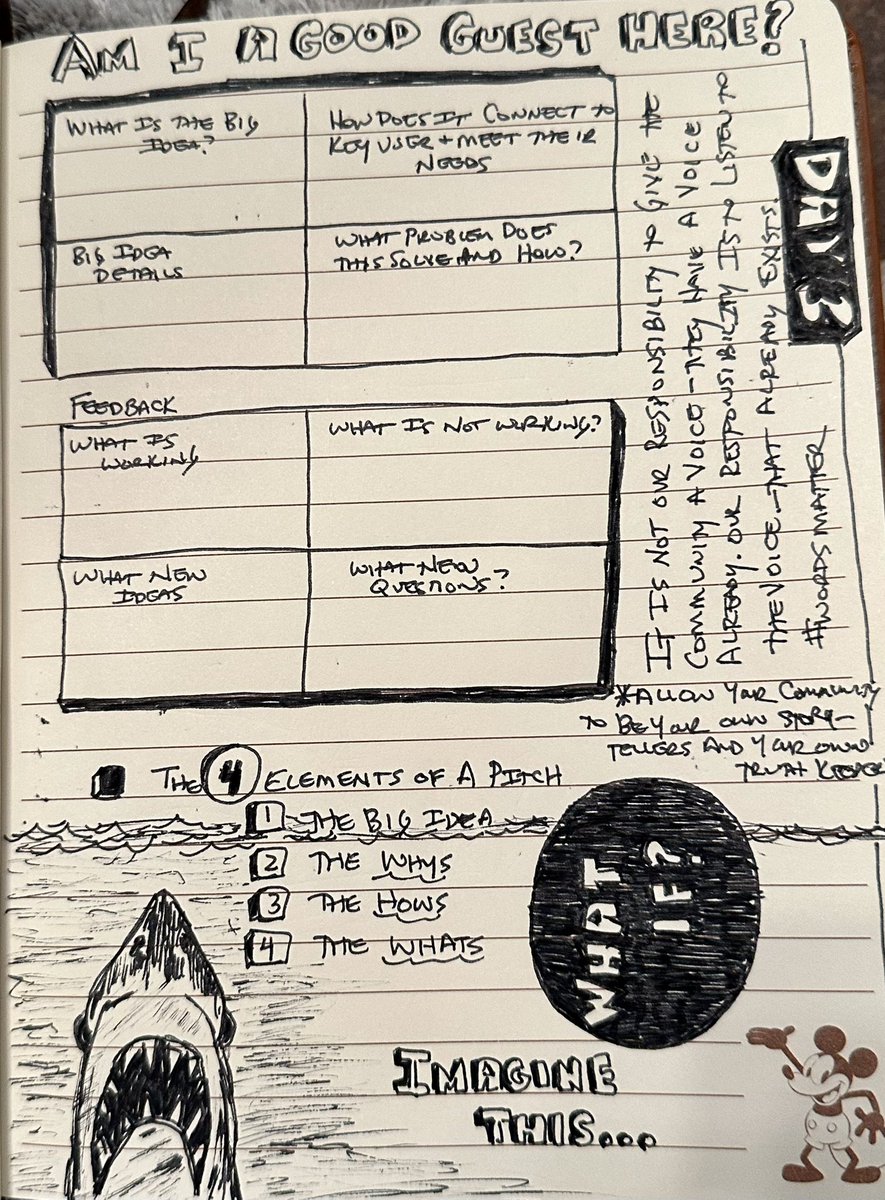 AM I A GOOD GUEST HERE?
WHAT IS THE BIG
IDEA?
HOW DOES IT CONNECT TO
KEY USER + MEET THEIR
NEEDS
BIG IDEA
DETAILS
WHAT PROBLEM DOES
THIS SOLVE AND HOW?
DAY 3
IT IS NOT OUR RESPONSIBILITY TO GIVE THE
COMMUNITY A VOICE - THEY HAVE A VOICE
ALREADY. OUR RESPONSIBILITY IS TO LISTEN TO
THE VOICE - THAT ALREADY EXISTS.
#WORDSMATTER
FEEDBACK
WHAT IS
WORKING
WHAT IS NOT WORKING?
WHAT NEW
IDEAS
WHAT NEW
QUESTIONS?
*ALLOW YOUR COMMUNITY
TO BE YOUR OWN STORY-
TELLERS AND YOUR OWN
TRUTH KEEPER
THE 4 ELEMENTS OF A PITCH
1 THE BIG IDEA
2 THE WHYS
3 THE HOWS
4 THE WHATS
WHAT
IF?
IMAGINE
THIS...